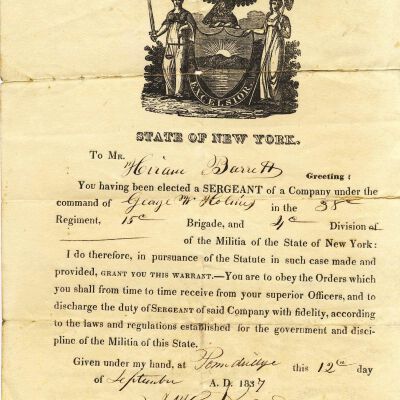 EXCELSIOR
STATE OF NEW YORK.
To Mr. Hiram Barrett Greeting:
You having been elected a SERGEANT of a Company under the
command of George W in the 38th
Regiment, 15th Brigade, and 4th Division of
of the Militia of the State of New York:
I do therefore, in pursuance of the Statute in such case made and
provided, GRANT YOU THIS WARRANT.—You are to obey the Orders which
you shall from time to time receive from your superior Officers, and to
discharge the duty of SERGEANT of said Company with fidelity, according
to the laws and regulations established for the government and disci-
pline of the Militia of this State.
Given under my hand, at Poundridge this 12th day
of September A. D. 1837